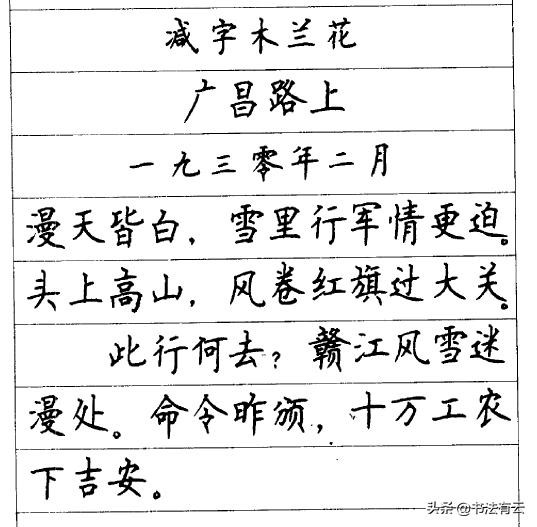 减字木兰花
广昌路上
一九三零年二月
漫天皆白，雪里行军情更迫。
头上高山，风卷红旗过大关。
此行何去？赣江风雪迷
漫处。命令昨颁，十万工农
下吉安。
头条@书法有云